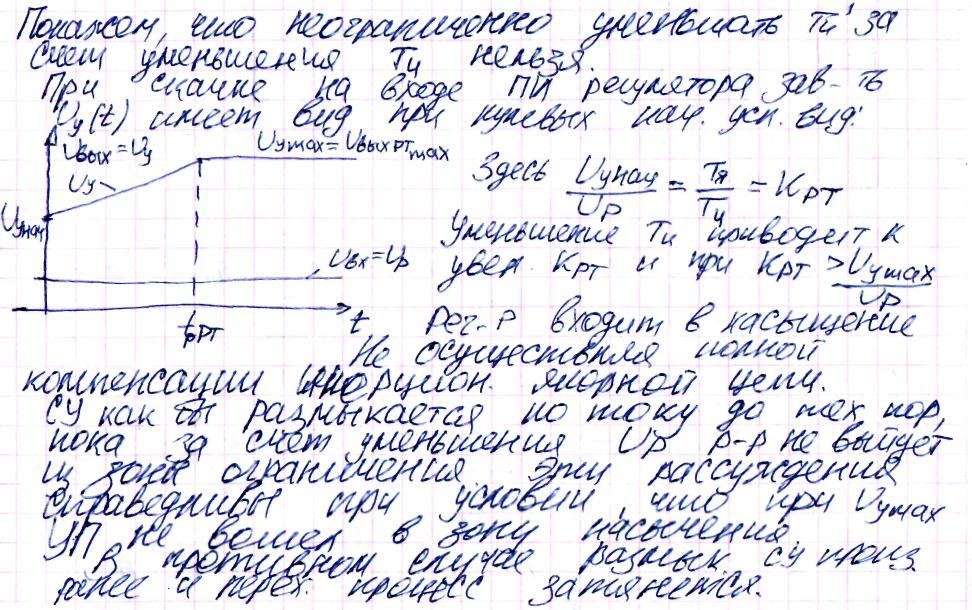 Покажем, что неограниченно уменьшать Tц' за
счет уменьшения Tц нельзя.
При скачке на входе ПИ регулятора зав-ть
Uу(t) имеет вид при нулевых нач. усл. вид:
Uвых = Uу
Uу max = Uвых рт max
Uу
Uу нач
Uвх = Uр
t рт
t
Здесь Uу нач / Uр = Tя / Tц = Kрт
Уменьшение Tц приводит к
увел. Kрт и при Kрт > Uу max / Uр
Рег-р входит в насыщение
Не осуществляя полной
компенсации инорцион. якорной цепи.
СУ как бы размыкается по току до тех пор,
пока за счет уменьшения Uр р-р не выйдет
из зоны ограничения Эти рассуждения
справедливы при условии, что при Uу max
УП не вошел в зону насычения
В противном случае размык. СУ произ.
ранее и перех. процесс затянется.